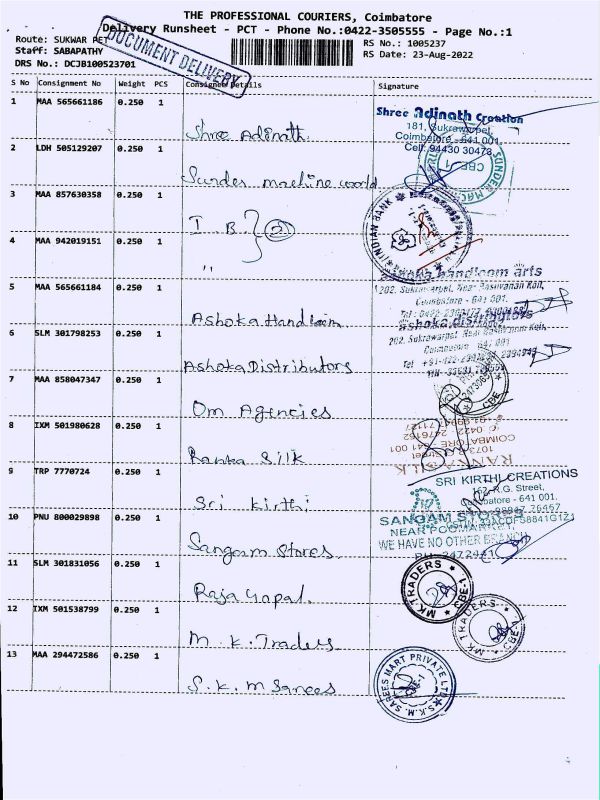 THE PROFESSIONAL COURIERS, Coimbatore
Delivery Runsheet - PCT - Phone No.:0422-3505555 - Page No.:1
Route: SUKWAR PET
RS No.: 1005237
Staff: SABAPATHY
RS Date: 23-Aug-2022
DRS No.: DCJB100523701
DOCUMENT DELIVERY
S No Consignment No Weight PCS Consignee Details Signature
1 MAA 565661186 0.250 1 Shree Adinath
Shree Adinath Creation
181, Sukrawarpet,
Coimbatore - 641 001.
Cell: 94430 30473
2 LDH 505129207 0.250 1 Sunder machine world
SUNDER MAC
CBE-1
3 MAA 857630358 0.250 1 I.B. } 2
INDIAN BANK
4 MAA 942019151 0.250 1 "
5 MAA 565661184 0.250 1 Ashoka Handloom
handloom arts
202, Sukrawarpet, Near
Coimbatore - 641 001.
6 SLM 301798253 0.250 1 Ashoka Distributors
202, Sukrawarpet,
7 MAA 858047347 0.250 1 Om Agencies
CBE
8 IXM 501980628 0.250 1 Ranka Silk
RANKA SILK
1073
COIMBATORE - 641 001
0422 - 2476152
9 TRP 7770724 0.250 1 Sri Kirthi
SRI KIRTHI CREATIONS
R.G. Street,
- 641 001.
10 PNU 800029898 0.250 1 Sangam Stores
SANGAM STORES
NEAR
WE HAVE NO OTHER BRANCH
11 SLM 301831056 0.250 1 Raja Gopal
MK TRADERS
CBE-1
12 IXM 501538799 0.250 1 M. K. Traders
MK TRADERS
CBE-1
13 MAA 294472586 0.250 1 S. K. M Sarees
S.K.M. SAREES MART PRIVATE LTD